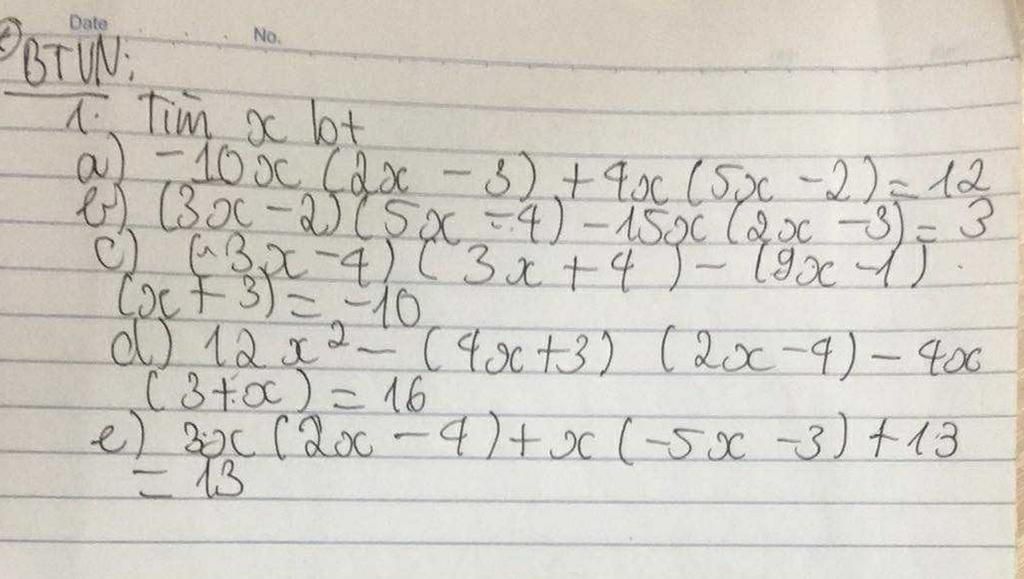 Date
No.
BTVN:
1. Tìm x bt
a) -10x (2x - 3) + 4x (5x - 2) = 12
b) (3x - 2) (5x - 4) - 15x (2x - 3) = 3
c) (-3x - 4) (3x + 4) - (9x - 1) .
(x + 3) = -10
d) 12x² - (4x + 3) (2x - 4) - 4x
(3 + x) = 16
e) 3x (2x - 4) + x (-5x - 3) + 13
= 13